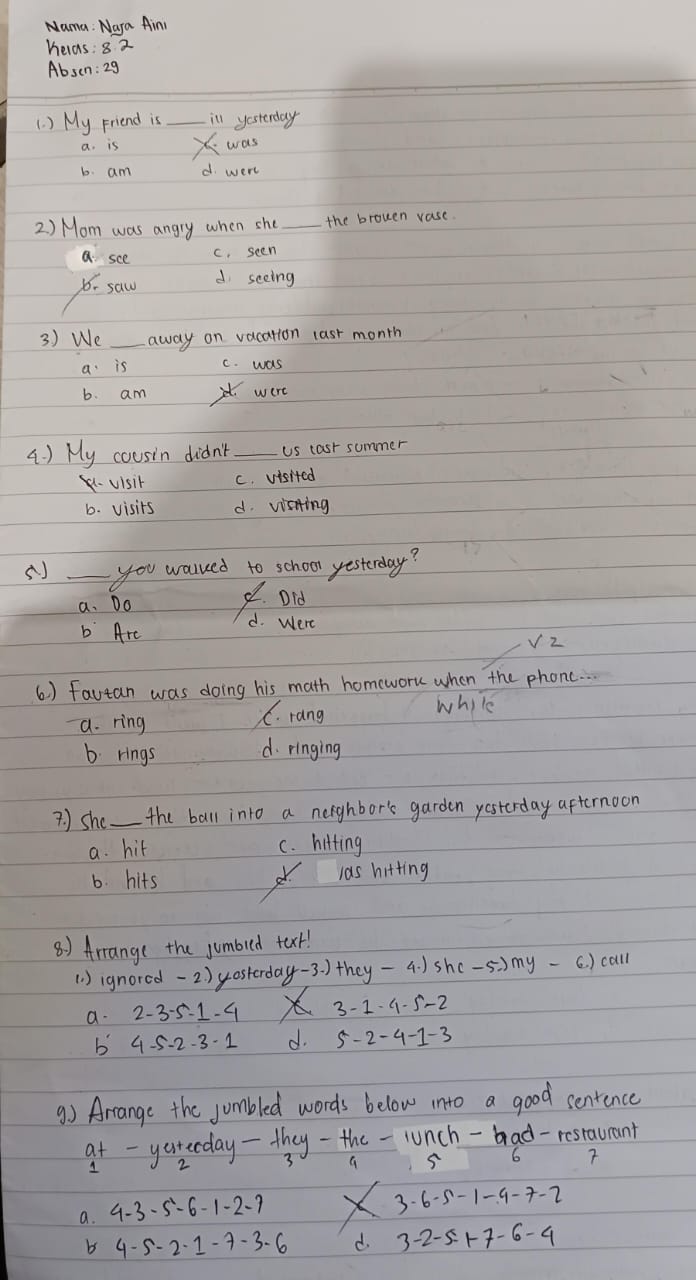 Nama: Naja Aini
Kelas: 8.2
Absen: 29
1.) My friend is ___ ill yesterday
a. is c. was
b. am d. were
2.) Mom was angry when she ___ the broken vase.
a. see c. seen
b. saw d. seeing
3.) We ___ away on vacation last month
a. is c. was
b. am d. were
4.) My cousin didn't ___ us last summer
a. visit c. visited
b. visits d. visiting
5.) ___ you walked to school yesterday?
a. Do c. Did
b. Are d. Were
V2
6.) Fauzan was doing his math homework when the phone...
while
a. ring c. rang
b. rings d. ringing
7.) She ___ the ball into a neighbor's garden yesterday afternoon
a. hit c. hitting
b. hits d. was hitting
8.) Arrange the jumbled text!
1.) ignored - 2.) yesterday - 3.) they - 4.) she - 5.) my - 6.) call
a. 2-3-5-1-4 c. 3-1-4-5-2
b. 4-5-2-3-1 d. 5-2-4-1-3
9.) Arrange the jumbled words below into a good sentence
at - yesterday - they - the - lunch - had - restaurant
1 2 3 4 5 6 7
a. 4-3-5-6-1-2-7 c. 3-6-5-1-4-7-2
b. 4-5-2-1-7-3-6 d. 3-2-5-1-7-6-4